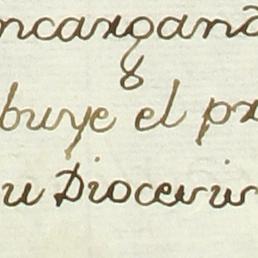 ncargand
buye el pr
u Diocesis